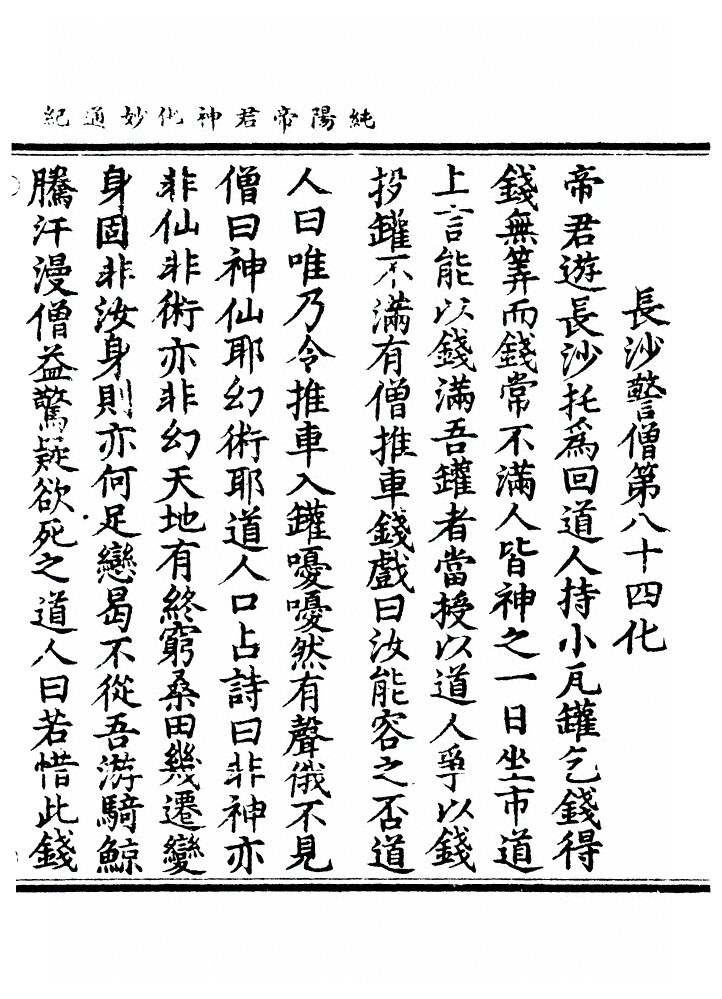 純陽帝君神化妙通紀
長沙警僧第八十四化
帝君遊長沙托爲回道人持小瓦罐乞錢得
錢無筭而錢常不滿人皆神之一日坐市道
上言能以錢滿吾罐者當授以道人爭以錢
投罐不滿有僧推車錢戲曰汝能容之否道
人曰唯乃令推車入罐嚘嚘然有聲俄不見
僧曰神仙耶幻術耶道人口占詩曰非神亦
非仙非術亦非幻天地有終窮桑田幾遷變
身固非汝身則亦何足戀曷不從吾游騎鯨
騰汗漫僧益驚疑欲死之道人曰若惜此錢